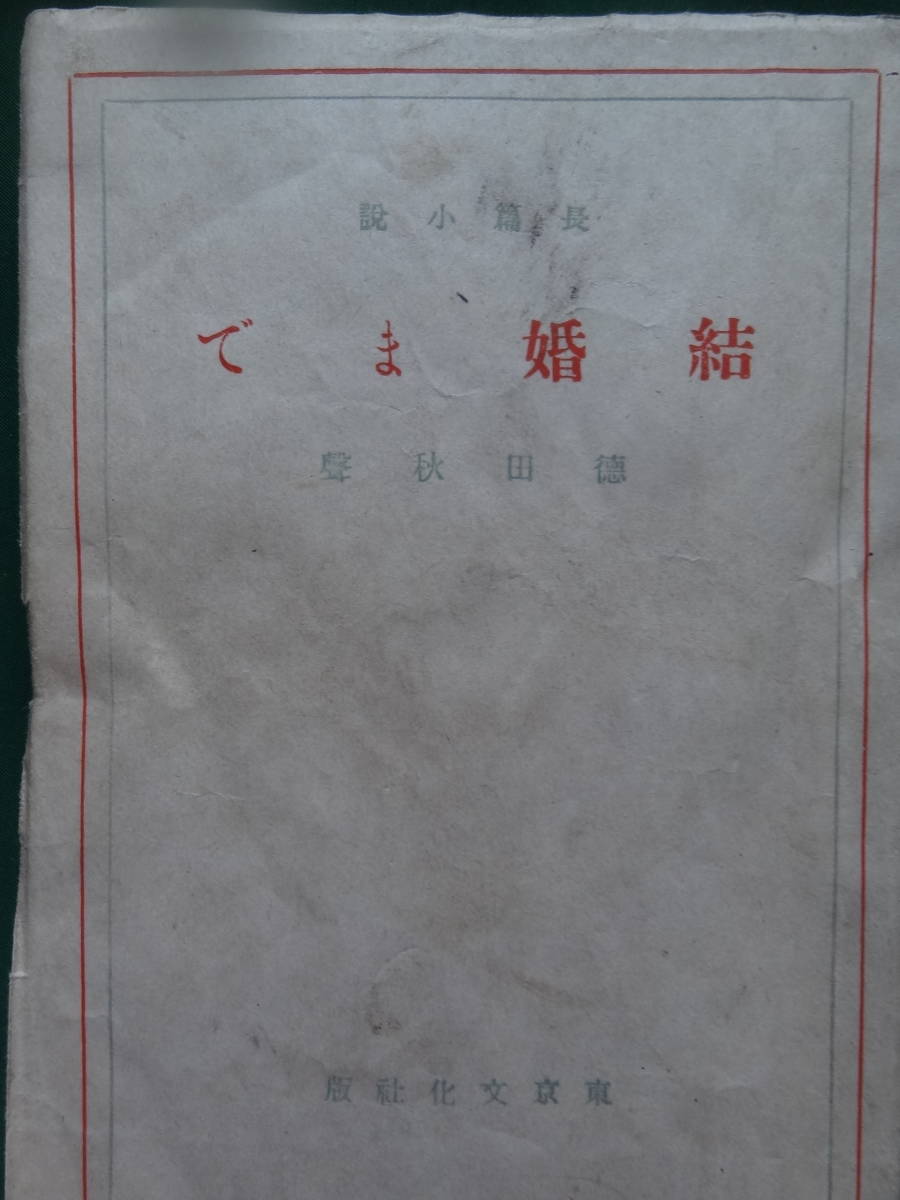 長篇小說
結婚まで
德田秋聲
東京文化社版